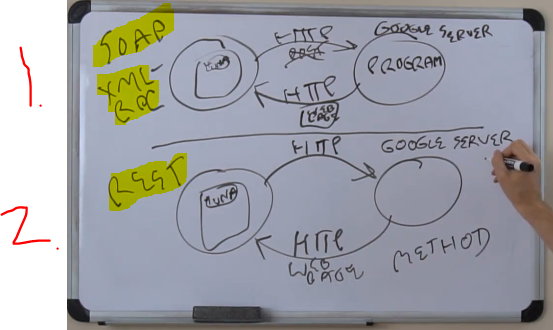 1.
SOAP
XML-
RPC
HTTP
GOOGLE SERVER
PROGRAM
HTTP
WEB
PAGE
REST
HTTP
GOOGLE SERVER
2.
HTTP
WEB
PAGE
METHOD